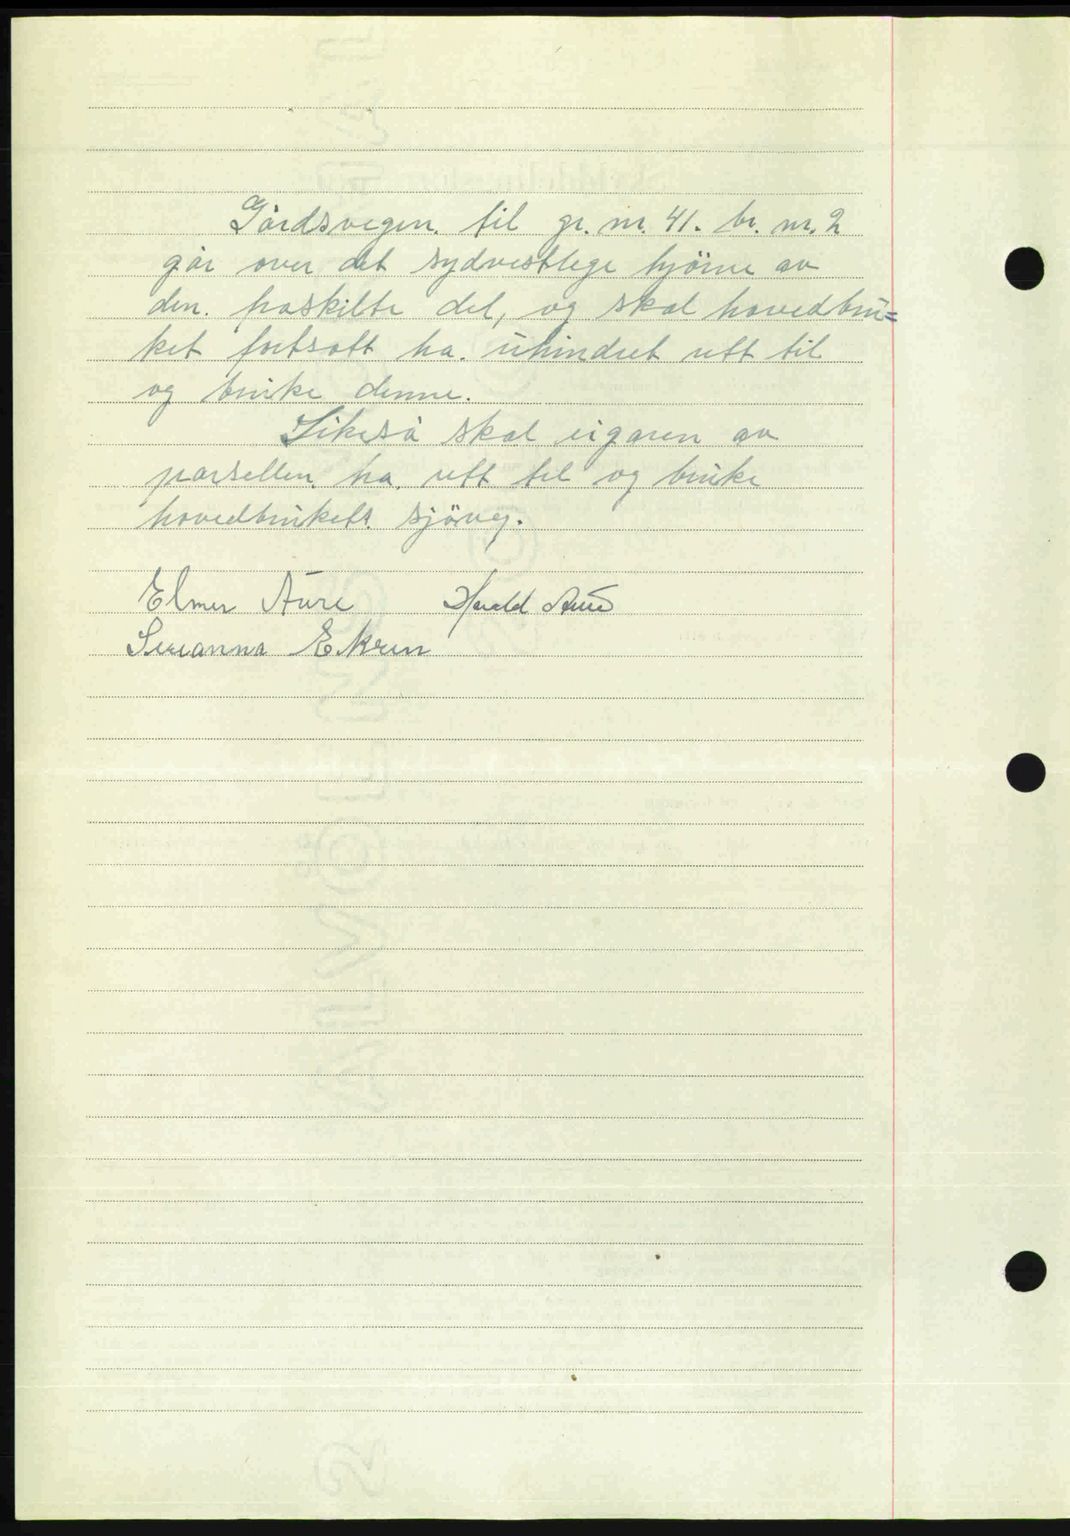 Gårdsvegen til gr. nr. 41. br. nr. 2
går over det sydvestlege hjörne av
den fraskilte del, og skal hovedbru=
ket fortsatt ha uhindret rett til
og bruke denne.
Likeså skal eigaren av
parsellen ha rett til og bruke
hovedbrukets sjöveg.
Elmer Aure Harald Aure
Ekren